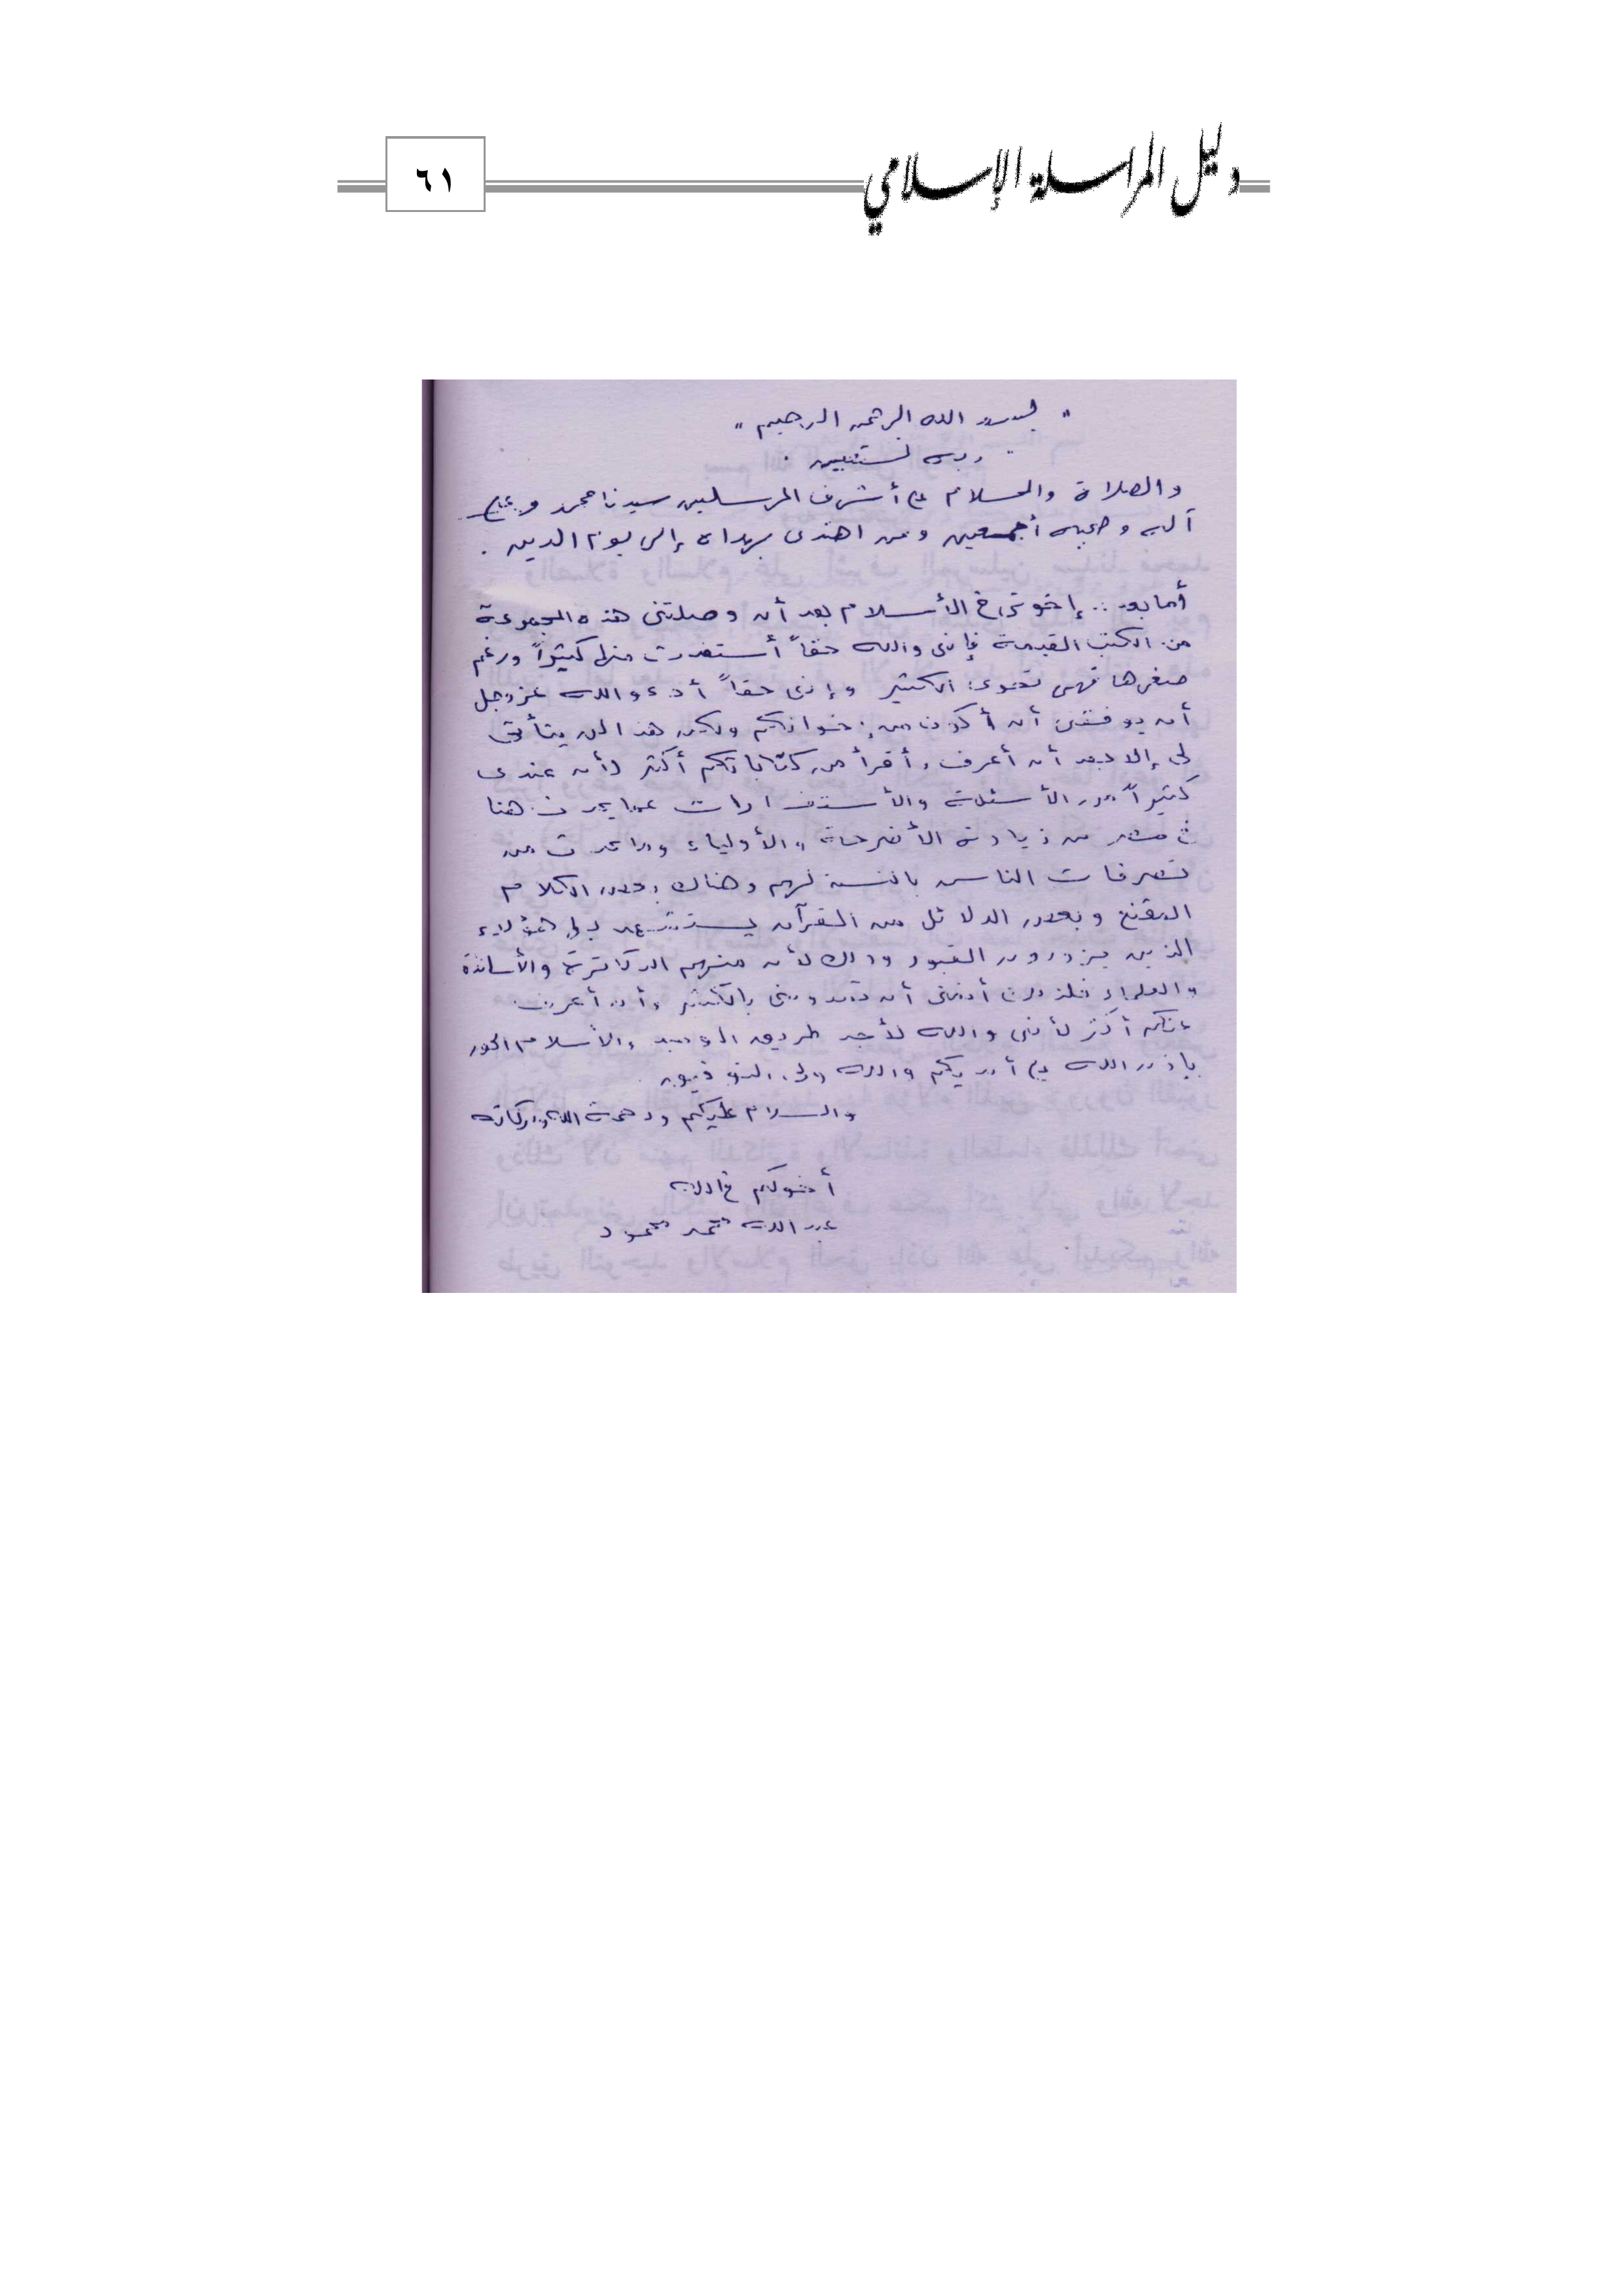 دليل المراسلة الإسلامي
٦١
" بسم الله الرحمن الرحيم "
" وبه نستعين .
والصلاة والسلام على أشرف المرسلين سيدنا محمد وعلى
آله وصحبه أجمعين ومن اهتدى بهداه إلى يوم الدين .
أما بعد .. إخوتى فى الأسلام بعد أن وصلتنى هذه المجموعة
من الكتب القيمة فإنى والله حقاً أستفدت منها كثيراً ورغم
صغرها فهى تحوى الكثير وإنى حقاً أدعو الله عز وجل
أن يوفقنى أن أكون من إخوانكم ولكن هذا لن يتأتى
لى إلا بعد أن أعرف وأقرأ من كتاباتكم أكثر لأن عندى
كثيراً من الأسئلة والأستفسارات عما يحدث هنا
فى مصر من زيارة الأضرحة والأولياء وما يحدث من
تصرفات الناس بالنسبة لهم وهناك بعض الكلام
المقنع وبعض الدلائل من القرآن يستشهد بها هؤلاء
الذين يزورون القبور وذلك لأن منهم الدكاترة والأساتذة
والعلماء فلذلك أتمنى أن تمدونى بالكثير وأن أعرف
عنكم أكثر لأنى والله لأجد طريق التوحيد والأسلام الحق
بإذن الله على أيديكم والله ولى التوفيق .
والسلام عليكم ورحمة الله وبركاته
أخوكم فى الله
عبد الله محمد محمود